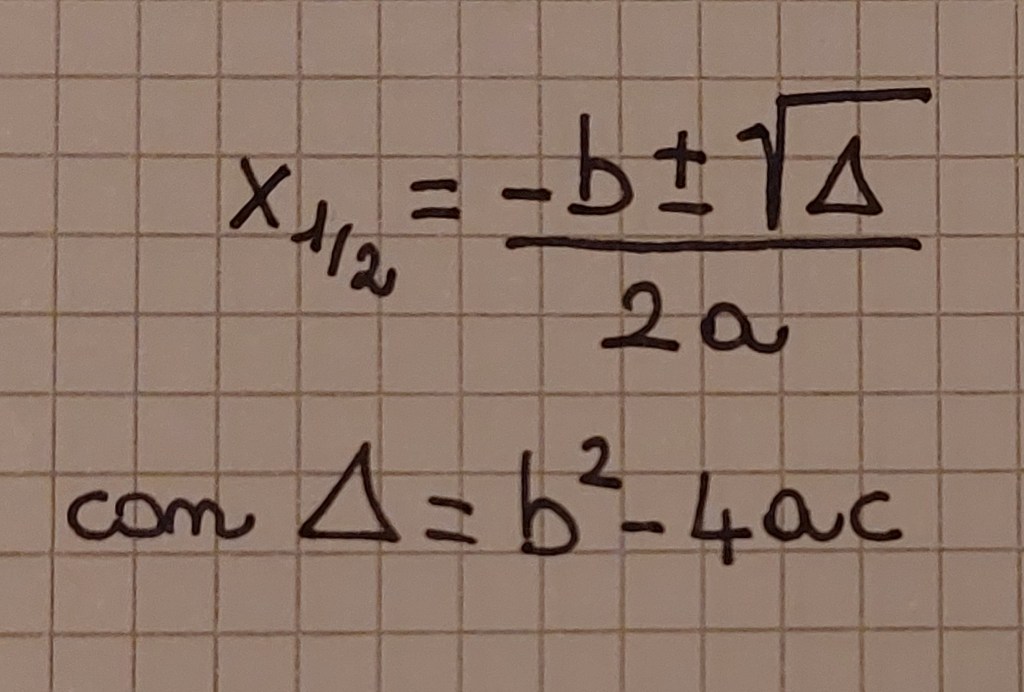 x₁/₂ = (-b ± √Δ) / 2a
con Δ = b² - 4ac